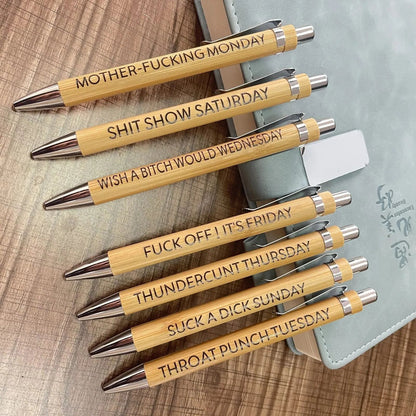 MOTHER-FUCKING MONDAY
SHIT SHOW SATURDAY
WISH A BITCH WOULD WEDNESDAY
FUCK OFF ! IT'S FRIDAY
THUNDERCUNT THURSDAY
SUCK A DICK SUNDAY
THROAT PUNCH TUESDAY